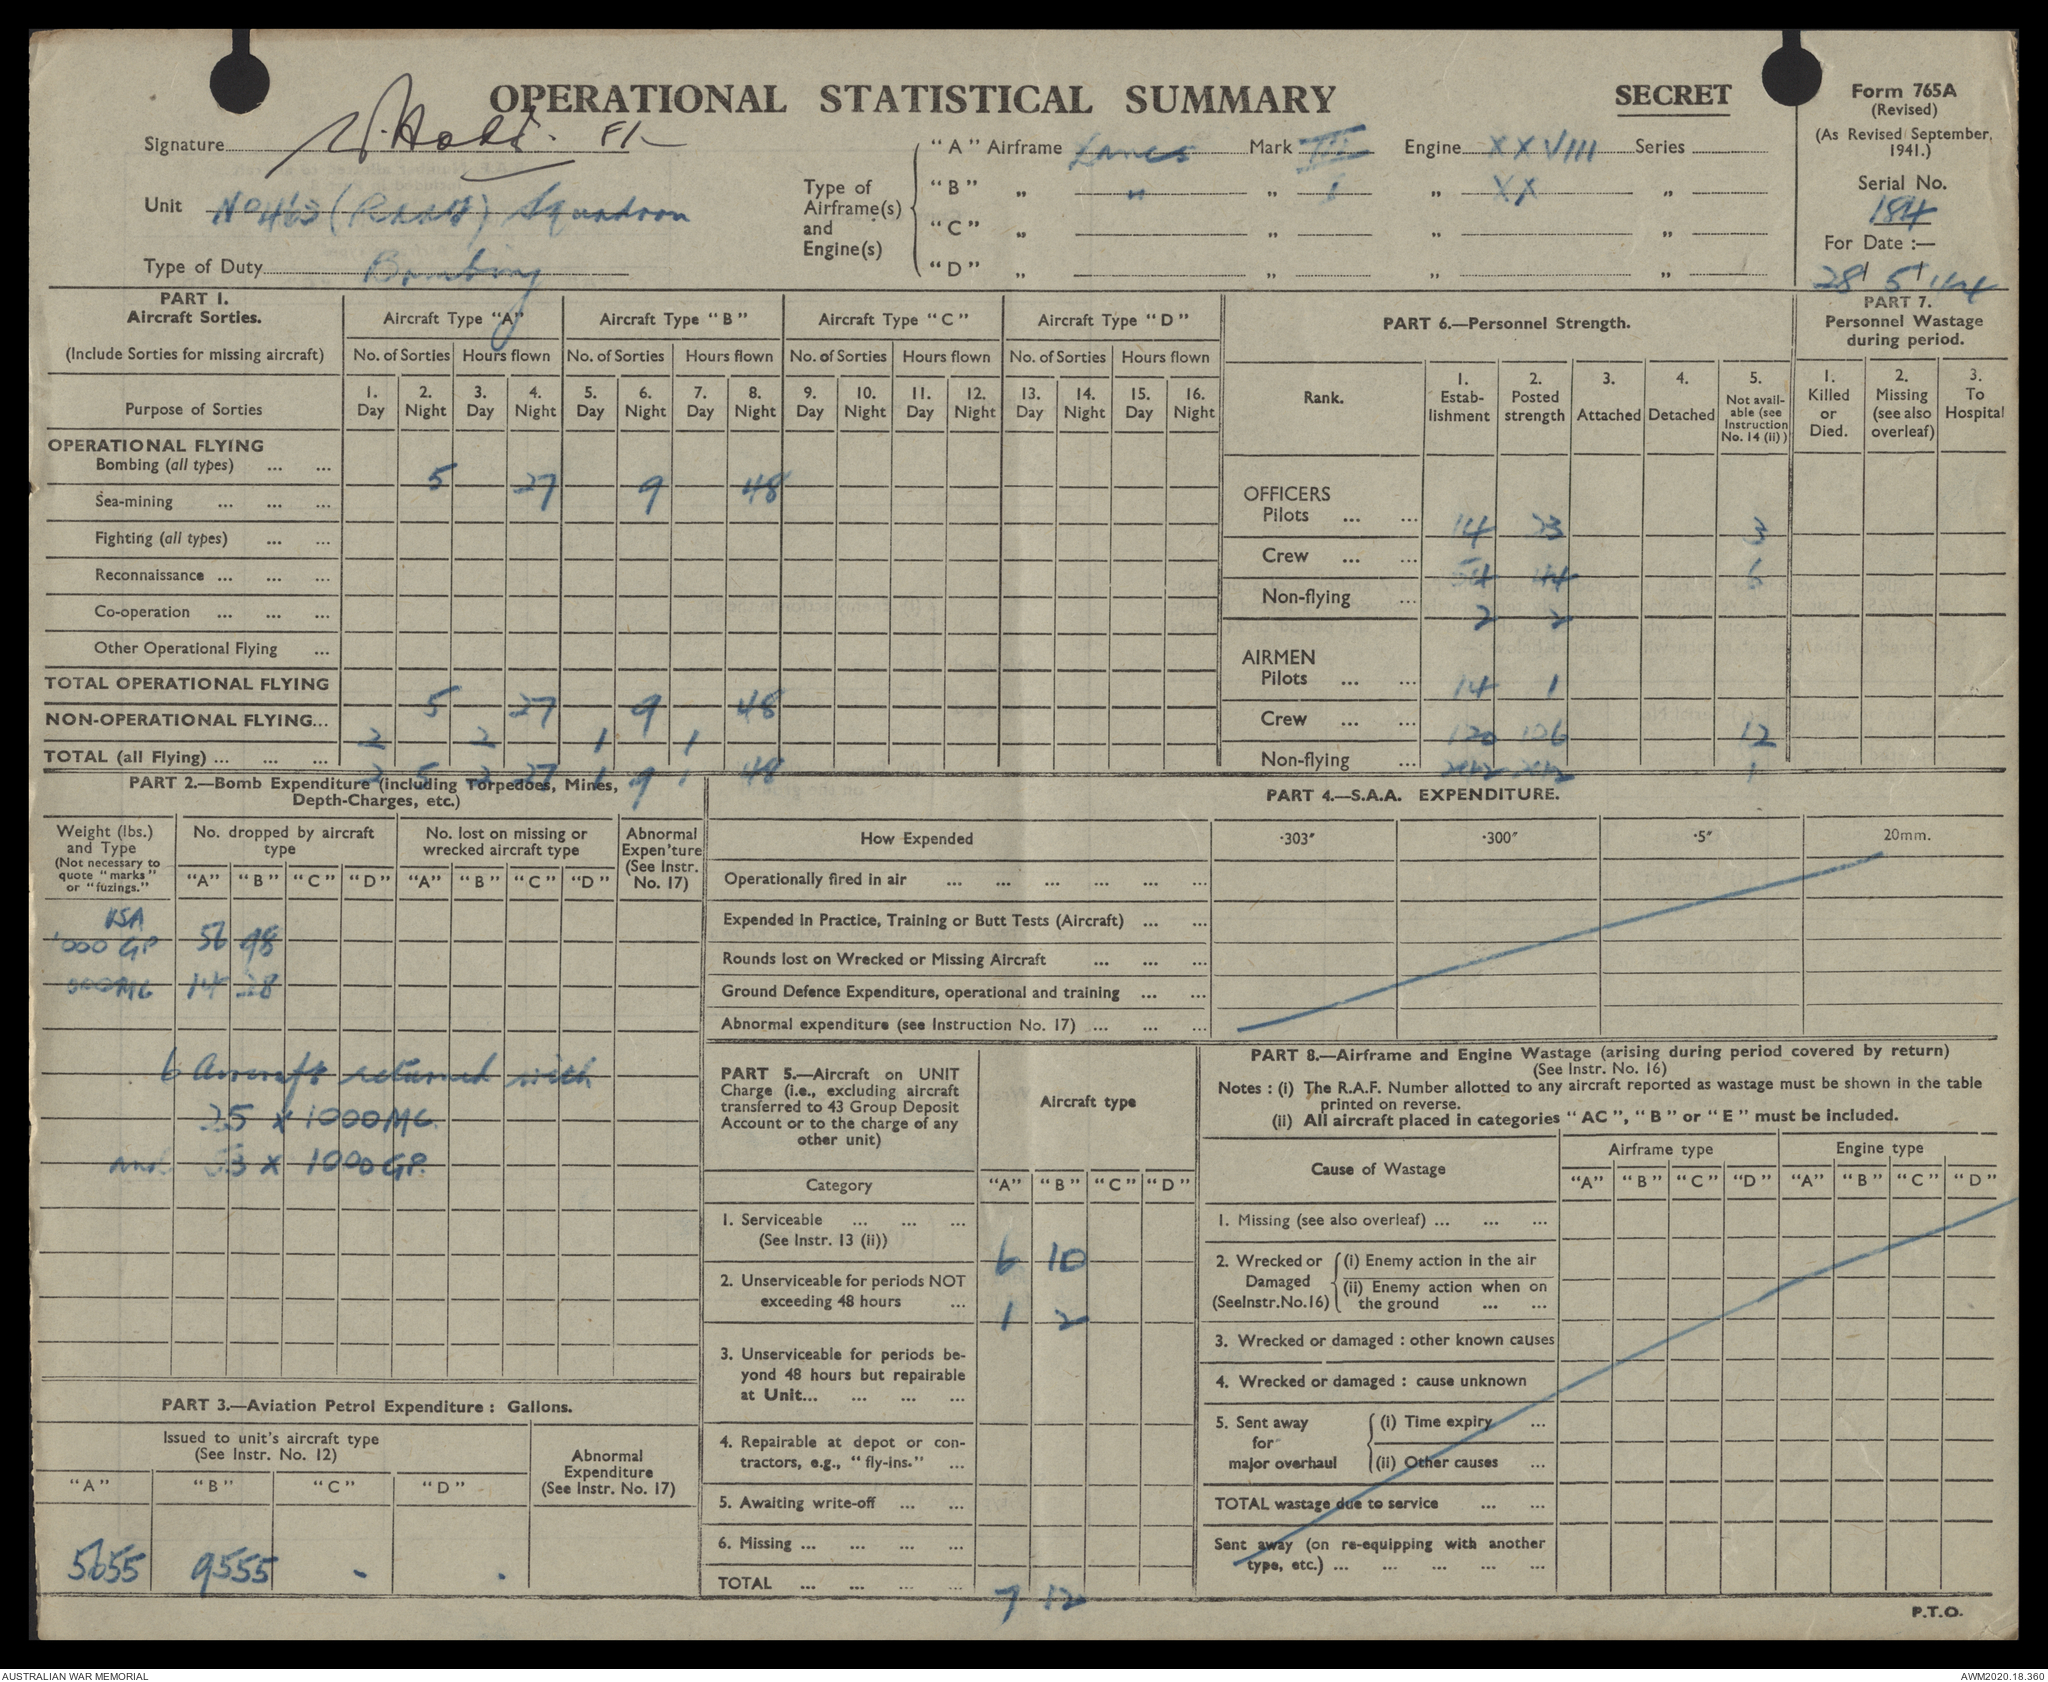 OPERATIONAL STATISTICAL SUMMARY
SECRET
Form 765A
(Revised)
(As Revised September, 1941.)
Serial No.
184
For Date :—
28 5 44
Signature
Unit No 463 (RAAF) Squadron
Type of Duty Bombing
Type of Airframe(s) and Engine(s)
"A" Airframe Lancs Mark III Engine XXVIII Series
"B" „ " „ I „ XX „
"C" „ „ „ „
"D" „ „ „ „
PART 1.
Aircraft Sorties.
(Include Sorties for missing aircraft)
Aircraft Type "A" Aircraft Type "B" Aircraft Type "C" Aircraft Type "D"
No. of Sorties Hours flown No. of Sorties Hours flown No. of Sorties Hours flown No. of Sorties Hours flown
Purpose of Sorties
1. Day 2. Night 3. Day 4. Night 5. Day 6. Night 7. Day 8. Night 9. Day 10. Night 11. Day 12. Night 13. Day 14. Night 15. Day 16. Night
OPERATIONAL FLYING
Bombing (all types) ... ... 5 27 9 48
Sea-mining ... ... ...
Fighting (all types) ... ...
Reconnaissance ... ... ...
Co-operation ... ... ...
Other Operational Flying ...
TOTAL OPERATIONAL FLYING 5 27 9 48
NON-OPERATIONAL FLYING... 2 2 1 1
TOTAL (all Flying) ... ... ... 2 5 2 27 1 9 1 48
PART 6.—Personnel Strength.
Rank.
1. Estab-lishment 2. Posted strength 3. Attached 4. Detached 5. Not avail-able (see Instruction No. 14 (ii))
OFFICERS
Pilots ... ... 14 23 3
Crew ... ... 54 44 6
Non-flying ... 2 2
AIRMEN
Pilots ... ... 14 1
Crew ... ... 120 106 12
Non-flying ... 1
PART 7.
Personnel Wastage during period.
1. Killed or Died. 2. Missing (see also overleaf) 3. To Hospital
PART 2.—Bomb Expenditure (including Torpedoes, Mines,
Depth-Charges, etc.)
Weight (lbs.) and Type
(Not necessary to quote "marks" or "fuzings."
No. dropped by aircraft type
No. lost on missing or wrecked aircraft type
Abnormal Expen'ture (See Instr. No. 17)
"A" "B" "C" "D" "A" "B" "C" "D"
USA
'000 GP 56 98
000 MC 14 28
6 Aircraft returned with
25 x 1000 MC
and 53 x 1000 GP.
PART 3.—Aviation Petrol Expenditure : Gallons.
Issued to unit's aircraft type
(See Instr. No. 12)
Abnormal Expenditure (See Instr. No. 17)
"A" "B" "C" "D"
5655 9555 - -
PART 4.—S.A.A. EXPENDITURE.
How Expended ·303″ ·300″ ·5″ 20mm.
Operationally fired in air ... ... ... ... ... ...
Expended in Practice, Training or Butt Tests (Aircraft) ... ...
Rounds lost on Wrecked or Missing Aircraft ... ... ...
Ground Defence Expenditure, operational and training ... ...
Abnormal expenditure (see Instruction No. 17) ... ... ...
PART 5.—Aircraft on UNIT
Charge (i.e., excluding aircraft
transferred to 43 Group Deposit
Account or to the charge of any
other unit)
Aircraft type
Category "A" "B" "C" "D"
1. Serviceable ... ... ...
(See Instr. 13 (ii)) 6 10
2. Unserviceable for periods NOT
exceeding 48 hours ... 1 2
3. Unserviceable for periods be-
yond 48 hours but repairable
at Unit... ... ... ...
4. Repairable at depot or con-
tractors, e.g., "fly-ins." ...
5. Awaiting write-off ... ...
6. Missing ... ... ... ...
TOTAL ... ... ... ... 7 12
PART 8.—Airframe and Engine Wastage (arising during period covered by return)
(See Instr. No. 16)
Notes : (i) The R.A.F. Number allotted to any aircraft reported as wastage must be shown in the table
printed on reverse.
(ii) All aircraft placed in categories "AC", "B" or "E" must be included.
Cause of Wastage
Airframe type Engine type
"A" "B" "C" "D" "A" "B" "C" "D"
1. Missing (see also overleaf) ... ... ...
2. Wrecked or Damaged (SeeInstr.No.16)
(i) Enemy action in the air
(ii) Enemy action when on
the ground ... ...
3. Wrecked or damaged : other known causes
4. Wrecked or damaged : cause unknown
5. Sent away for major overhaul
(i) Time expiry ...
(ii) Other causes ...
TOTAL wastage due to service ... ...
Sent away (on re-equipping with another
type, etc.) ... ... ... ... ...
P.T.O.
AUSTRALIAN WAR MEMORIAL
AWM2020.18.360